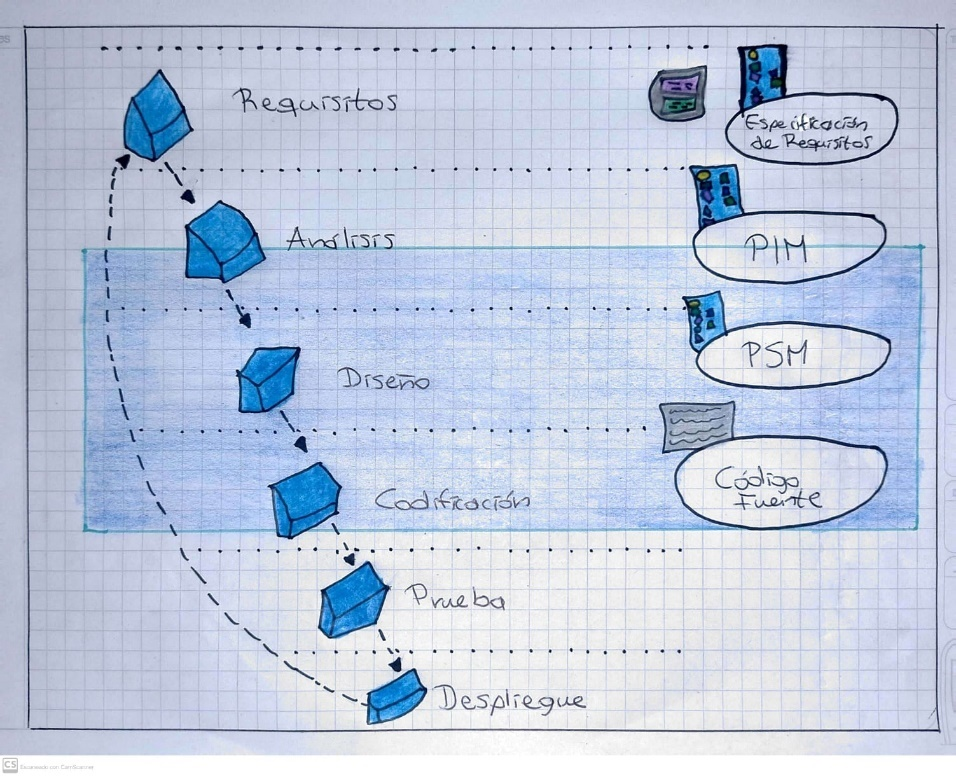 Requisitos
Especificación
de Requisitos
Análisis
PIM
Diseño
PSM
Codificación
Código
Fuente
Prueba
Despliegue
CS Escaneado con CamScanner